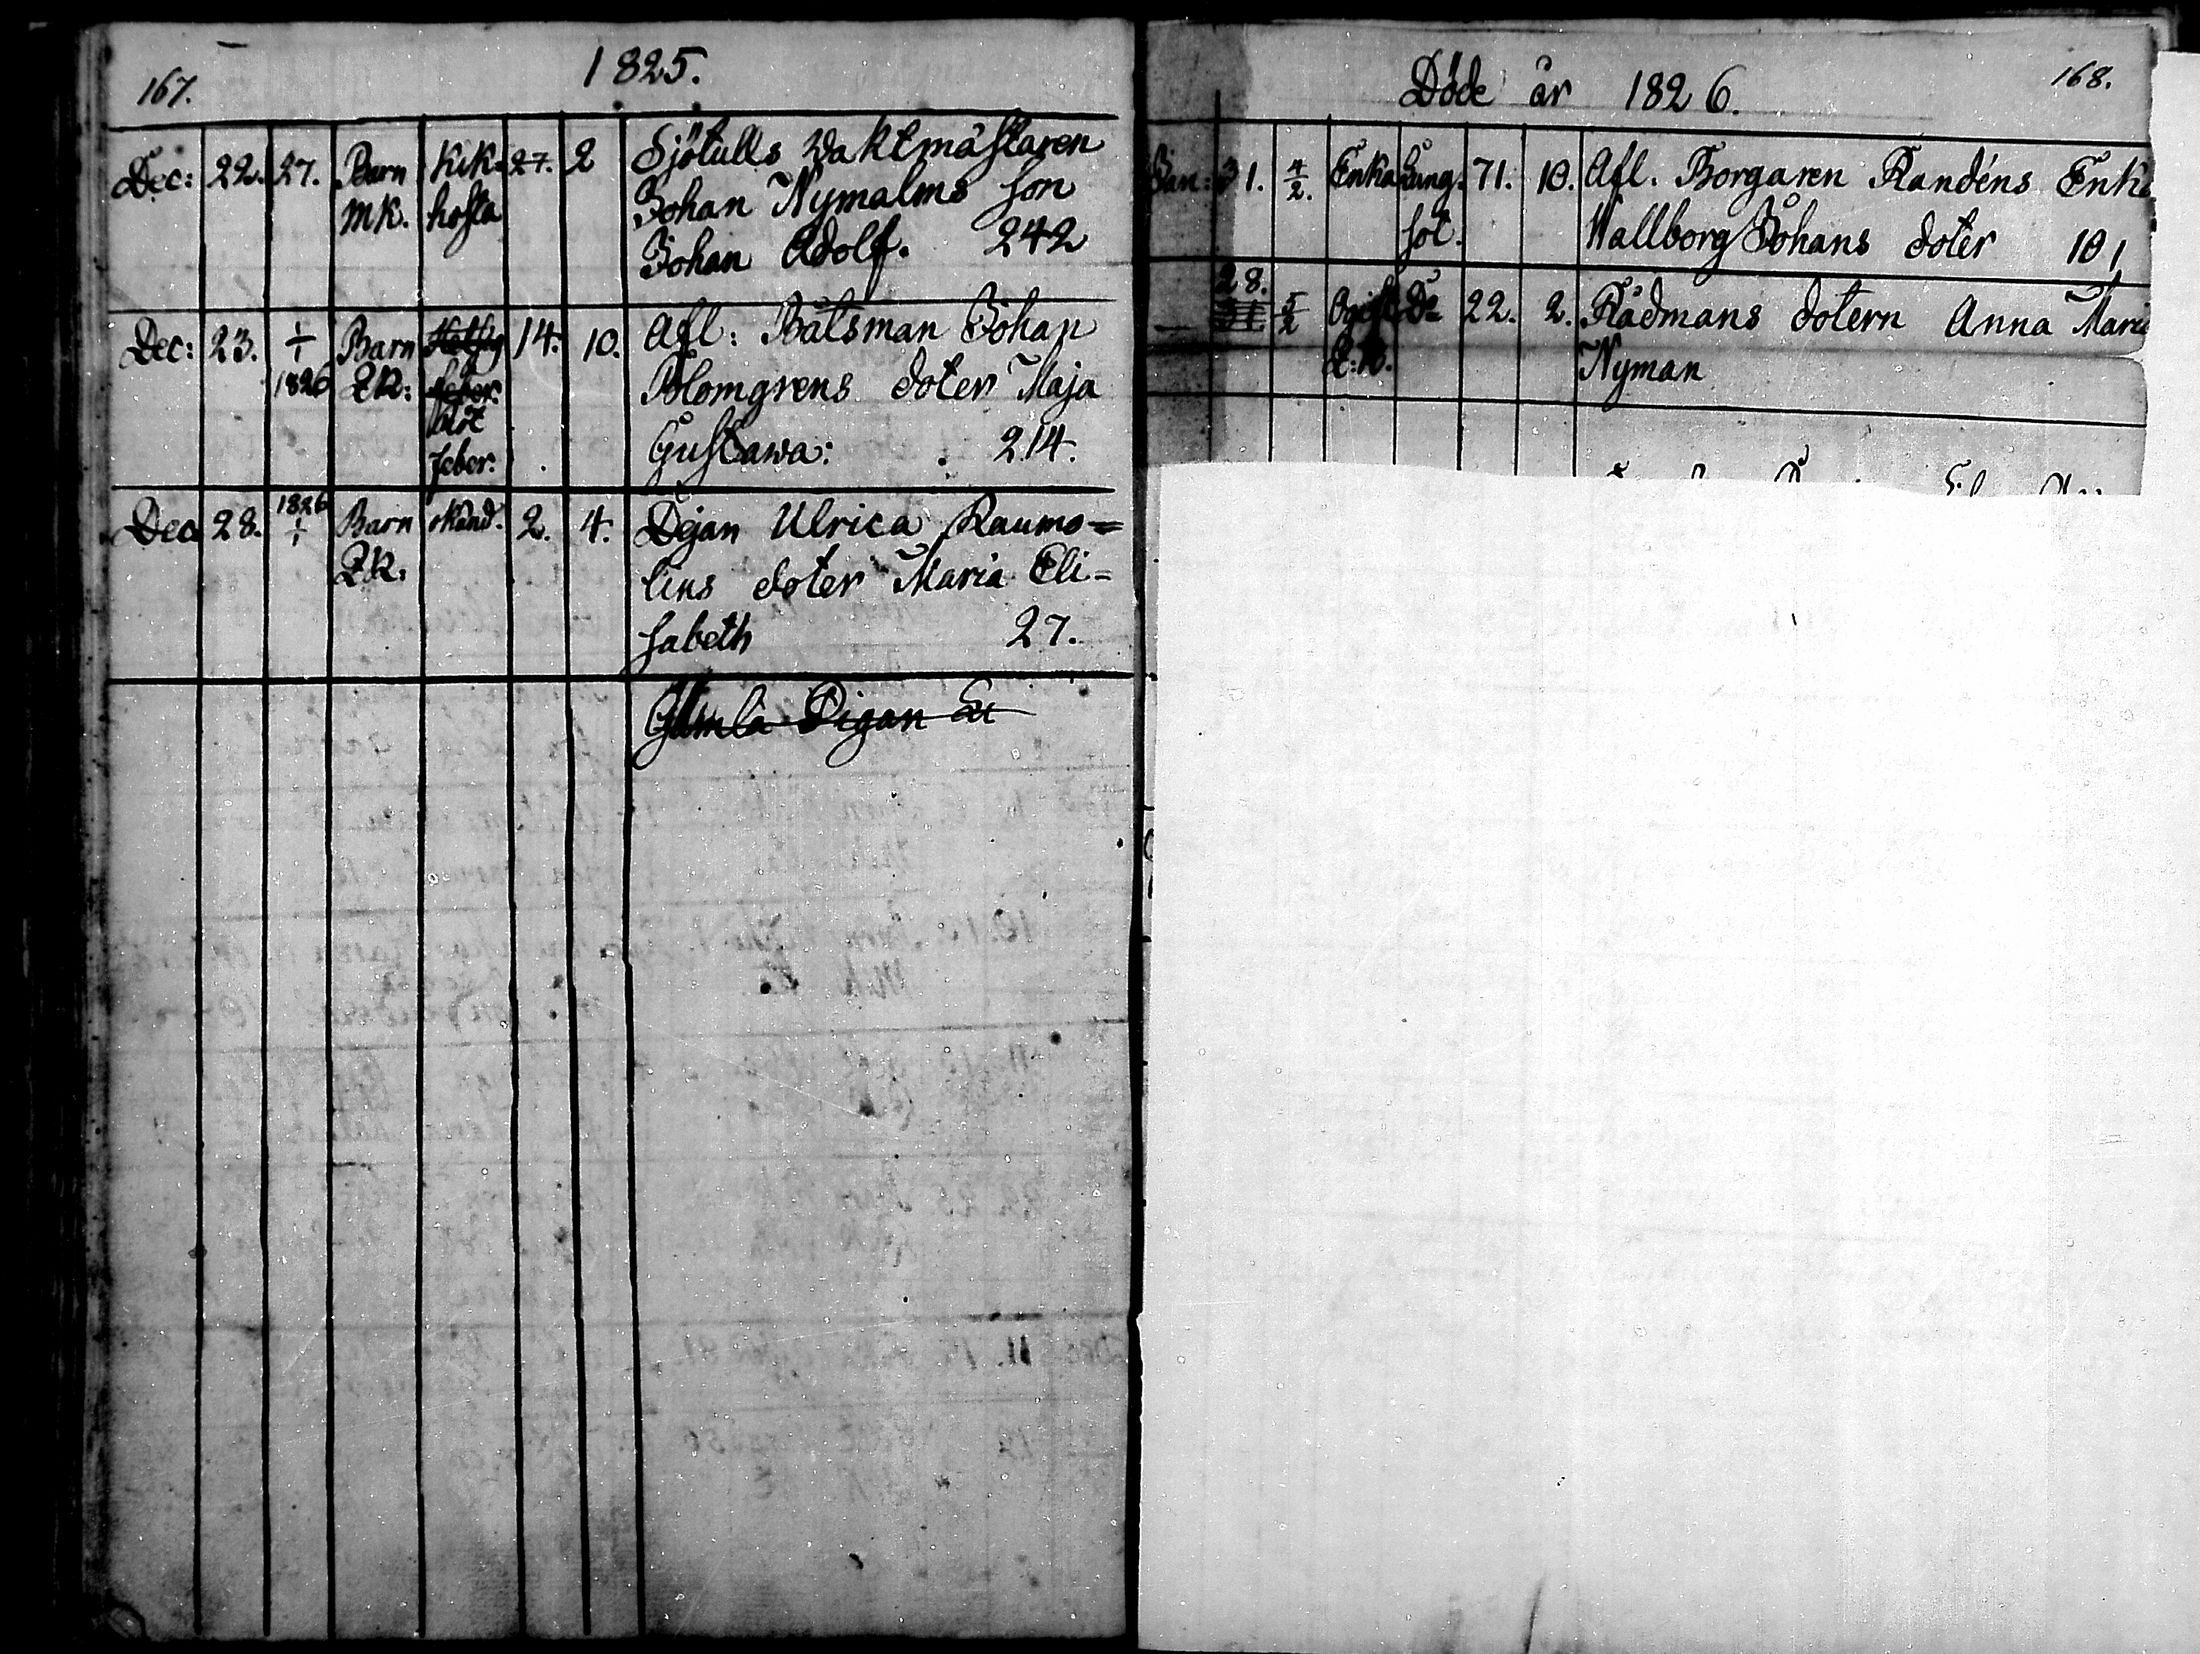 167.
1825.
Dec: 22. 27. Barn Kik- 27. 2 Sjötulls Waktmästaren
mk. hosta Johan Nymalms son
Johan Adolf. 242
Dec: 23. 1/1 Barn Hetsig 14. 10. Afl: Båtsman Johan
1826 QK: feber. Blomgrens doter Maja
Röt Gustawa: 214.
feber.
Dec 28. 1826 Barn okänd. 2. 4. Dejan Ulrica Raumo=
1/1 QK. lins doter Maria Eli=
sabeth 27.
Gamla Pigan
168.
Döde år 1826.
Jan: 31. 4/2. Enka Lung- 71. 10. Afl. Borgaren Randéns Enka
sot. Wallborg Johans doter 101
28.
31 5/2 Ogift Do 22. 2. Rådmans dotern Anna Maria
Q:K. Nyman